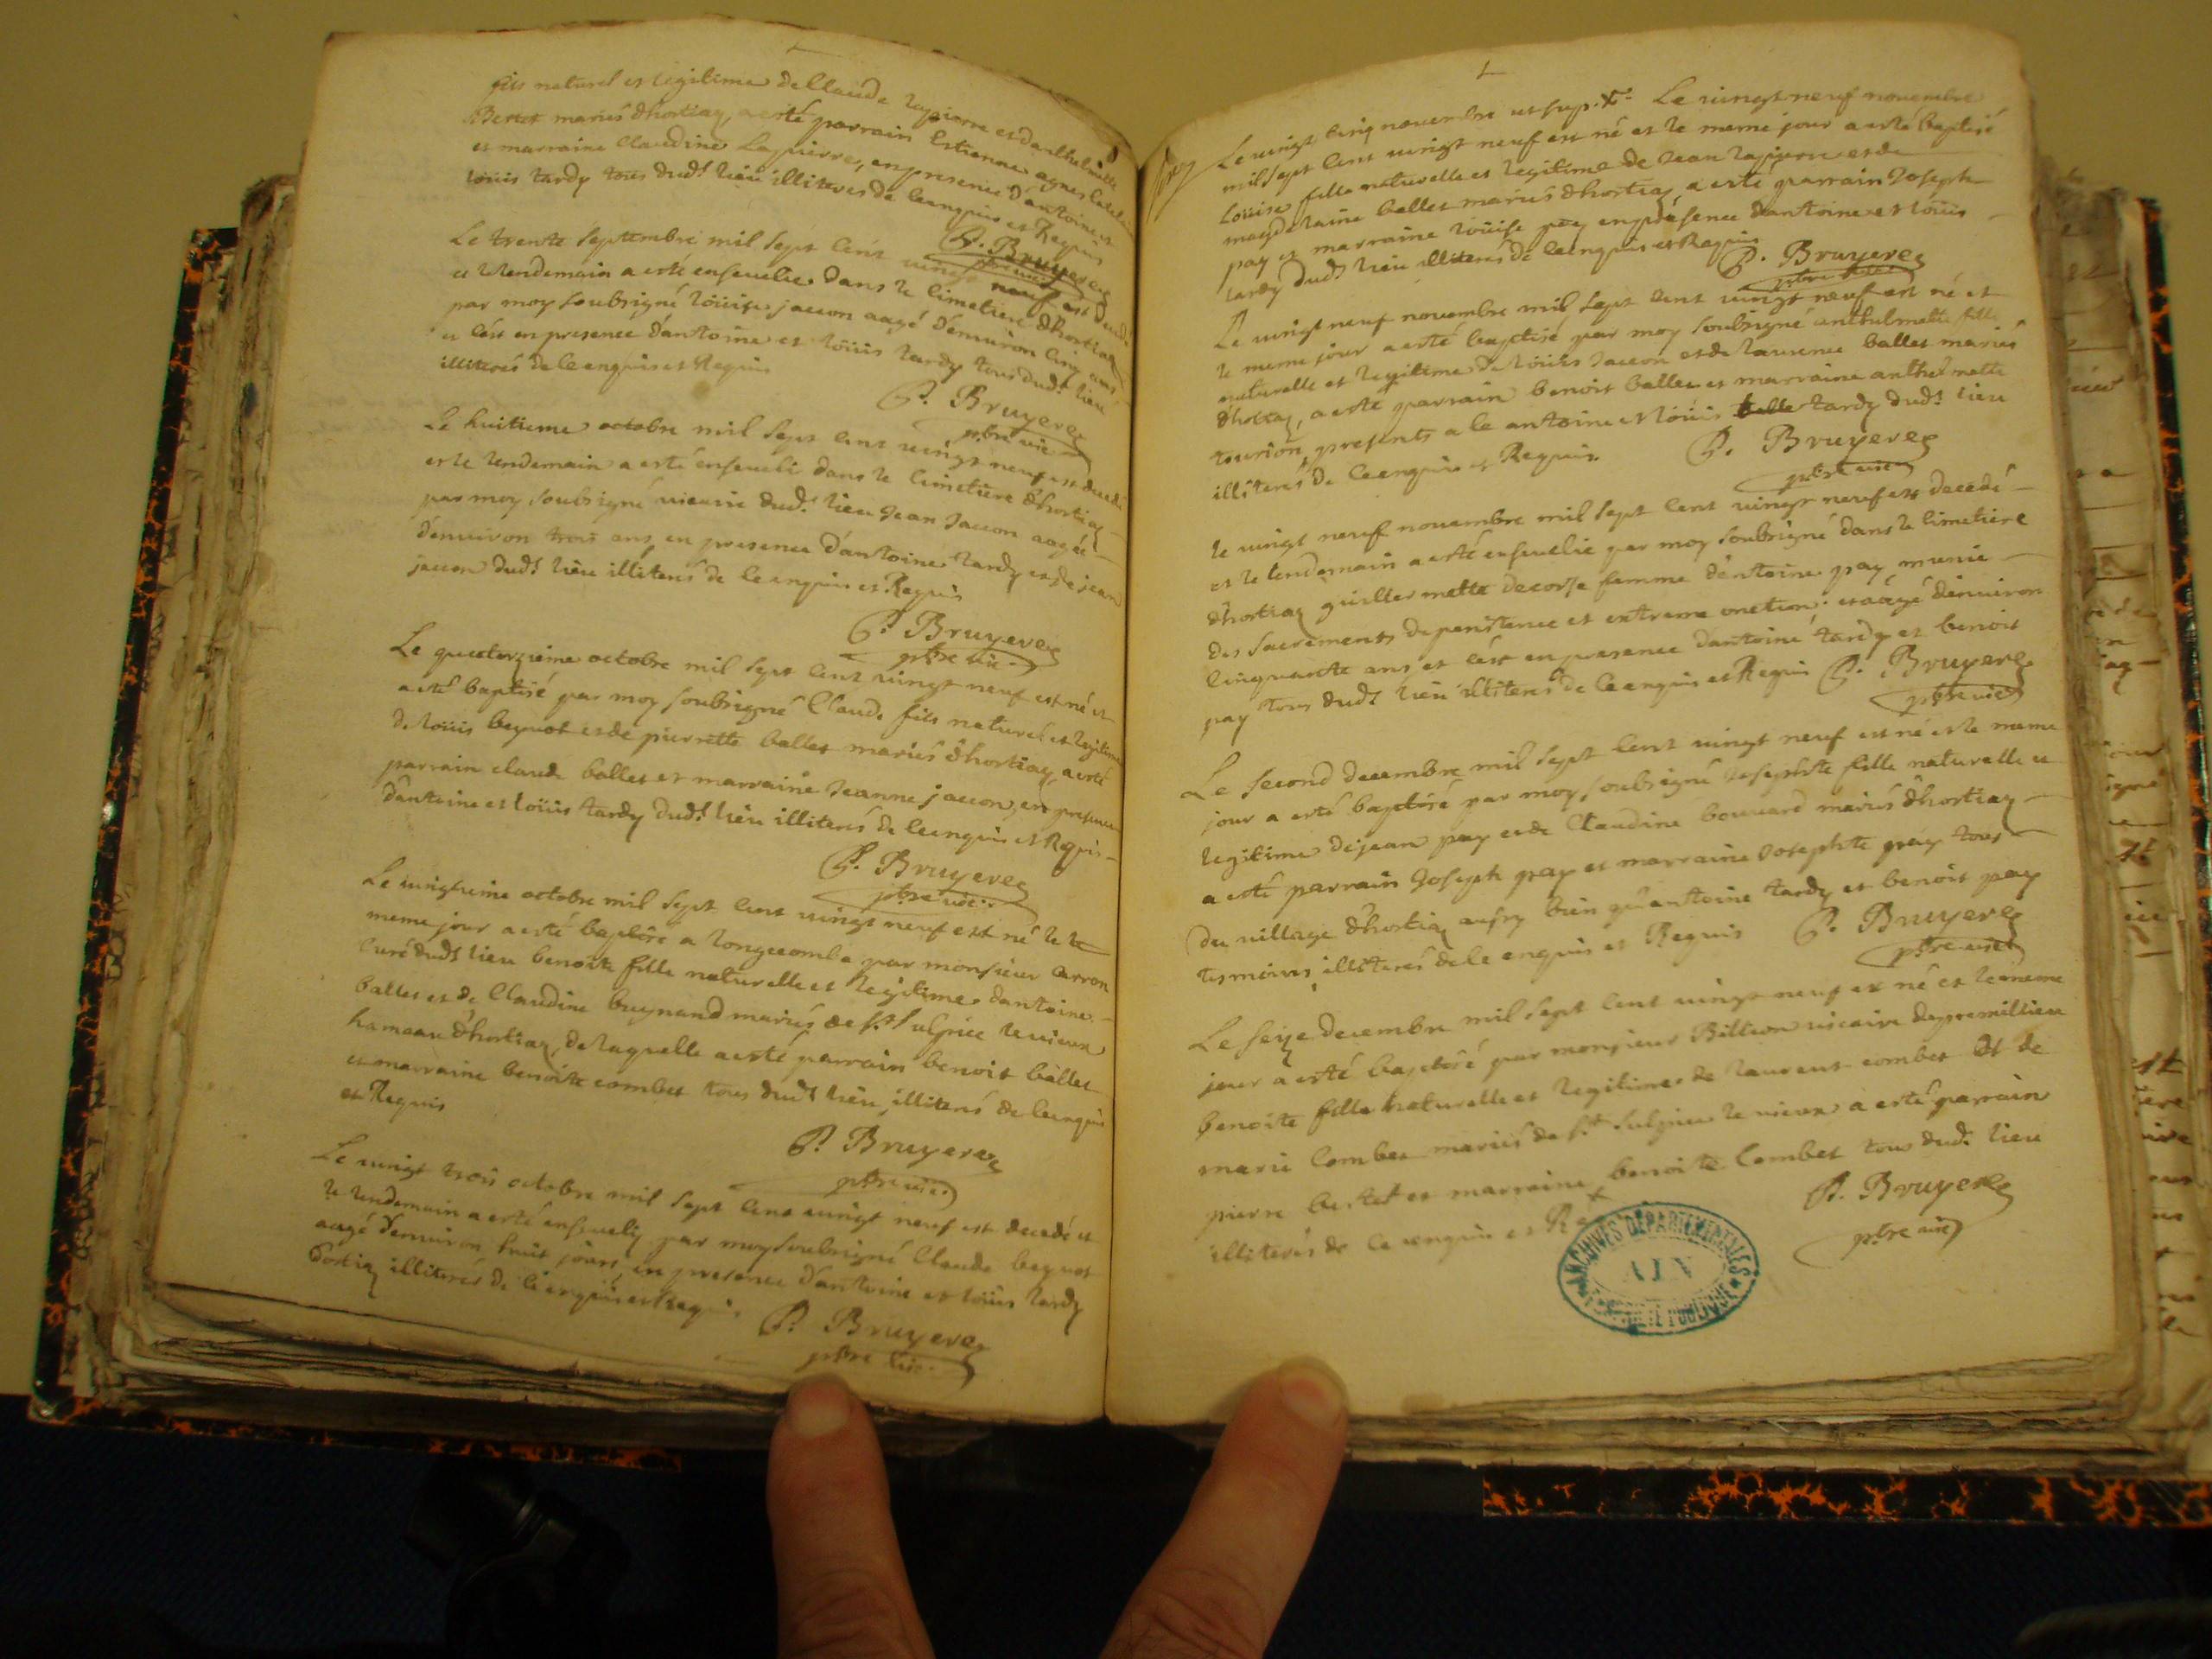 fils naturel et legitime de Claude lapierre et danthelmette
Bertet mariés dhortiaz, a esté parrain Estienne agnes
et marraine Claudine Lapierre, en presence d'antoine et
loüis tardy tous dud.t lieu illiterés de ce enquis et Requis
P. Bruyere
ptre vic
Le trente septembre mil sept cent vingt neuf est decedé
et le lendemain a esté ensevelie dans le cimetiere dhortiaz
par moy soubsigné loüise jacon aagé d'environ cinq ans
et c'est en presence d'antoine et loüis tardy tous dud.t lieu
illiterés de ce enquis et Requis
P. Bruyere
ptre vic
Le huitieme octobre mil sept cent vingt neuf est decedé
et le lendemain a esté enseveli dans le cimetiere dhortiaz
par moy soubsigné vicaire dud.t lieu Jean Jacon aagée
d'environ trois ans, en presence d'antoine tardy et de jean
jacon dud.t lieu illiterés de ce enquis et Requis
P. Bruyere
ptre vic.
Le quatorzieme octobre mil sept cent vingt neuf est né et
a esté baptisé par moy soubsigné Claude fils naturel et legitime
de loüis beguot et de pierrette ballet mariés dhortiaz, a esté
parrain claude ballet et marraine Jeanne jacon, en presence
d'antoine et loüis tardy dud.t lieu illiterés de ce enquis et Requis
P. Bruyere
ptre vic.
Le vingtieme octobre mil sept cent vingt neuf est né le
meme jour a esté baptisé a longecombe par monsieur Carron
curé dud.t lieu benoite fille naturelle et legitime dantoine
ballet et de Claudine brugnand mariés de s.t sulpice le vieux
hameau dhortiaz, de laquelle a esté parrain benoit ballet
et marraine benoite combet tous dud.t lieu, illiterés de ce enquis
et Requis
P. Bruyere
ptre vic.
Le vingt trois octobre mil sept cent vingt neuf est decedé et
le lendemain a esté ensevely par moy soubsigné Claude beguot
aagé d'environ huit jours, en presence d'antoine et loüis tardy
dortiaz illiterés de ce enquis et Requis
P. Bruyere
ptre vic.
Le vingt cinq novembre ut sup. Le vingt neuf novembre
mil sept cent vingt neuf est né et le meme jour a esté baptisé
Loüise fille naturelle et legitime de Jean lapierre et de
magdelaine ballet mariés dhortiaz, a esté parrain Joseph
pay et marraine loüise pay en présence dantoine et loüis
tardy dud.t lieu illiterés de ce enquis et Requis
P. Bruyere
ptre vic
Le vingt neuf novembre mil sept cent vingt neuf est né et
le meme jour a esté baptisé par moy soubsigné anthelmette fille
naturelle et legitime de loüis Jacon et de laurence ballet mariés
dhortiaz, a esté parrain benoit ballet et marraine anthelmette
tourion, presents a ce antoine et loüis tardy dud.t lieu
illiterés de ce enquis et Requis
P. Bruyere
ptre vic
le vingt neuf novembre mil sept cent vingt neuf est decedé
et le lendemain a esté ensevelie par moy soubsigné dans le cimetiere
dhortiaz guillermette decorse femme d'antoine pay munie
des sacrements de penitence et extreme onction. et aagé d'environ
cinquante ans et c'est en presence dantoine tardy et benoit
pay tous dud.t lieu illiterés de ce enquis et Requis P. Bruyere
ptre vic
Le second decembre mil sept cent vingt neuf est né et le meme
jour a esté baptisé par moy soubsigné Josephte fille naturelle et
legitime de jean pay et de Claudine bouvard mariés dhortiaz
a esté parrain Joseph pay et marraine Josephte pay tous
du village dhortiaz aussy bien qu'antoine tardy et benoit pay
tesmoins illiterés de ce enquis et Requis P. Bruyere
ptre vic
Le seize decembre mil sept cent vingt neuf est né et le meme
jour a esté baptisé par monsieur Billion vicaire de premillieu
benoite fille naturelle et legitime de laurent combet et de
marie Combet mariés de s.t sulpice le vieux a esté parrain
pierre bertet et marraine benoite Combet tous dud.t lieu
illiterés de ce enquis et
P. Bruyere
ptre vic
ARCHIVES DEPARTEMENTALES
AIN